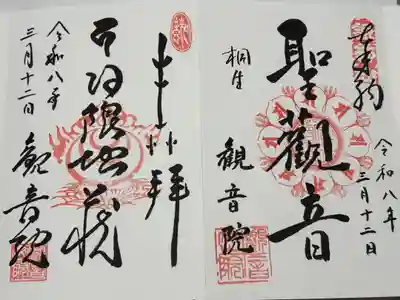 令和八年
三月十二日
聖觀音
桐生
観音院
奉拝
日限地蔵
令和八年
三月十二日
観音院